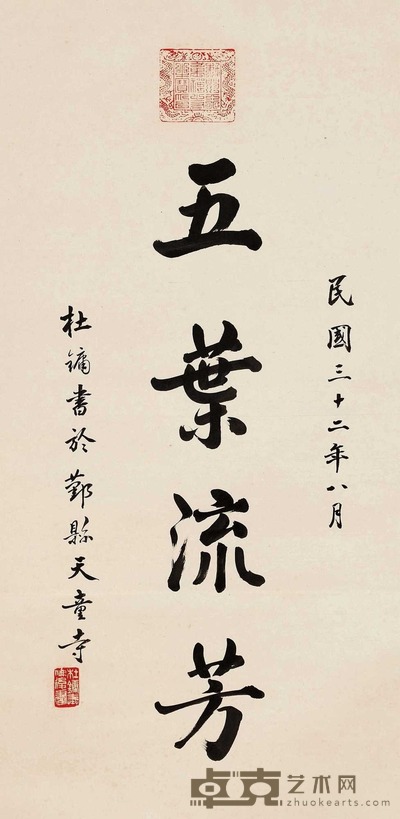 民國三十二年八月
五葉流芳
杜鏞書於鄞縣天童寺
卓克艺术网
zhuokearts.com